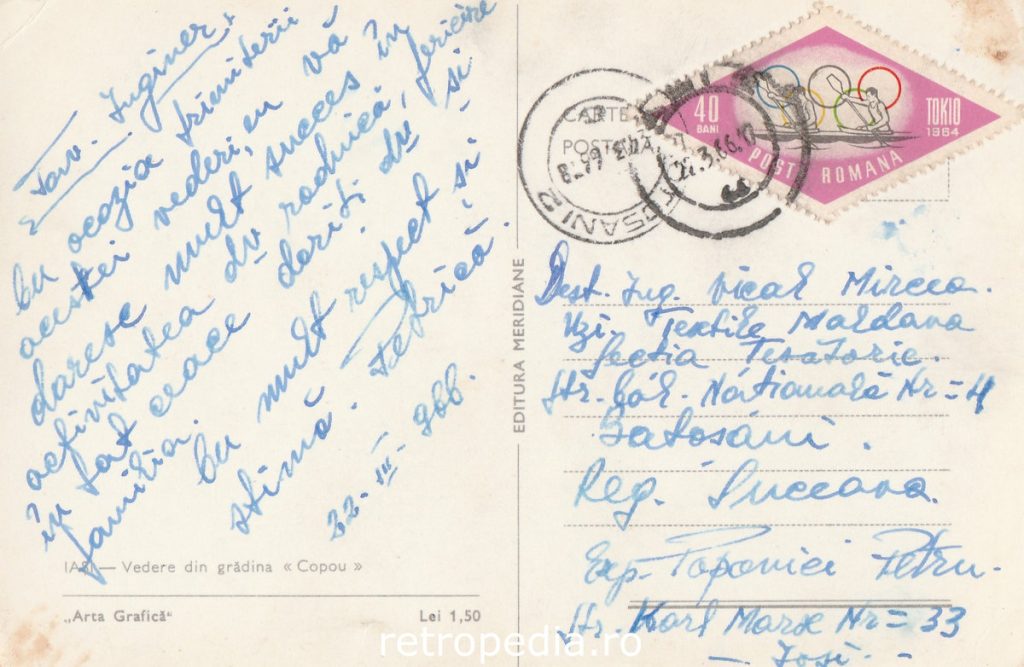 Tov. Inginer,
Cu ocazia trimiterii
acestei vederi, eu vă
doresc mult succes în
activitatea dv rodnică, fericire
în tot ceace doriți dv și
familia.
Cu mult respect și
stimă. Petrică.
22-III-966.
IAȘI — Vedere din grădina « Copou »
„Arta Grafică"
Lei 1,50
EDITURA MERIDIANE
CARTE
POȘTALĂ
40
BANI
TOKIO
1964
POSTA ROMANA
Dest. Ing. Vicol Mircea.
Uzi. Textile Moldova
Secția Tesătorie.
Str. Găr. Națională Nr = 4
Botosani.
Reg. Suceava.
Exp. Popovici Petru.
Str. Karl Marx Nr = 33
— Iași — -
retropedia.ro